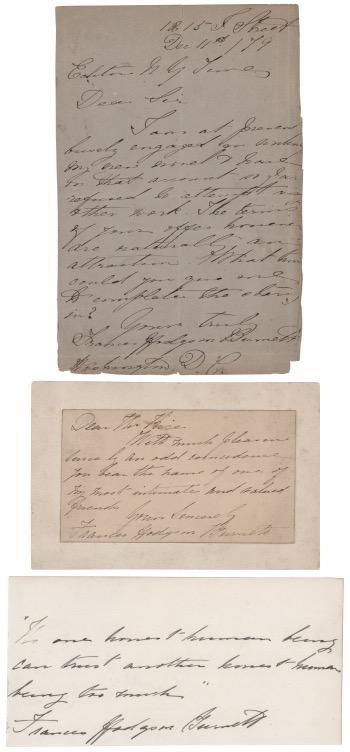 1215 I Street
Dec 11th / 79
Editor N Y Times
Dear Sir
I am at present
busily engaged on
my new novel & have
on that account so far
refused to attempt any
other work. The terms
of your offer however
are naturally an
attraction. What time
could you give me
to complete the story
in?
Yours truly
Frances Hodgson Burnett
Washington D. C.
Dear Mr
With much pleasure
by an odd coincidence
you bear the name of one of
my most intimate and valued
friends
Yours Sincerely
Frances Hodgson Burnett
"No one honest human being
can trust another honest human
being too much"
Frances Hodgson Burnett